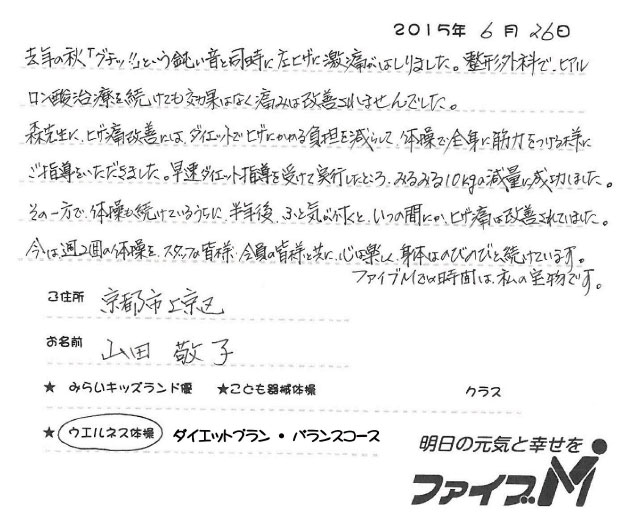 2015年 6月 26日
去年の秋「グチッ!!」という鈍い音と同時に左ヒザに激痛がはしりました。整形外科で、ヒアル
ロン酸治療を続けても効果はなく痛みは改善されませんでした。
森先生に、ヒザ痛改善には、ダイエットでヒザにかかる負担を減らして、体操で全身に筋力をつける様に
ご指導をいただきました。早速ダイエット指導を受けて実行したところ、みるみる10kgの減量に成功しました。
その一方で、体操も続けているうちに、半年後、ふと気が付くと、いつの間にか、ヒザ痛は改善されていました。
今は週2回の体操を、スタッフの皆様、会員の皆様と共に、心は楽しく、身体はのびのびと続けています。
ファイブMでの時間は、私の宝物です。
ご住所 京都市上京区
お名前 山田 敬子
★ みらいキッズランド優 ★こども器械体操 クラス
★ ウエルネス体操 ダイエットプラン・バランスコース
明日の元気と幸せを
ファイブM